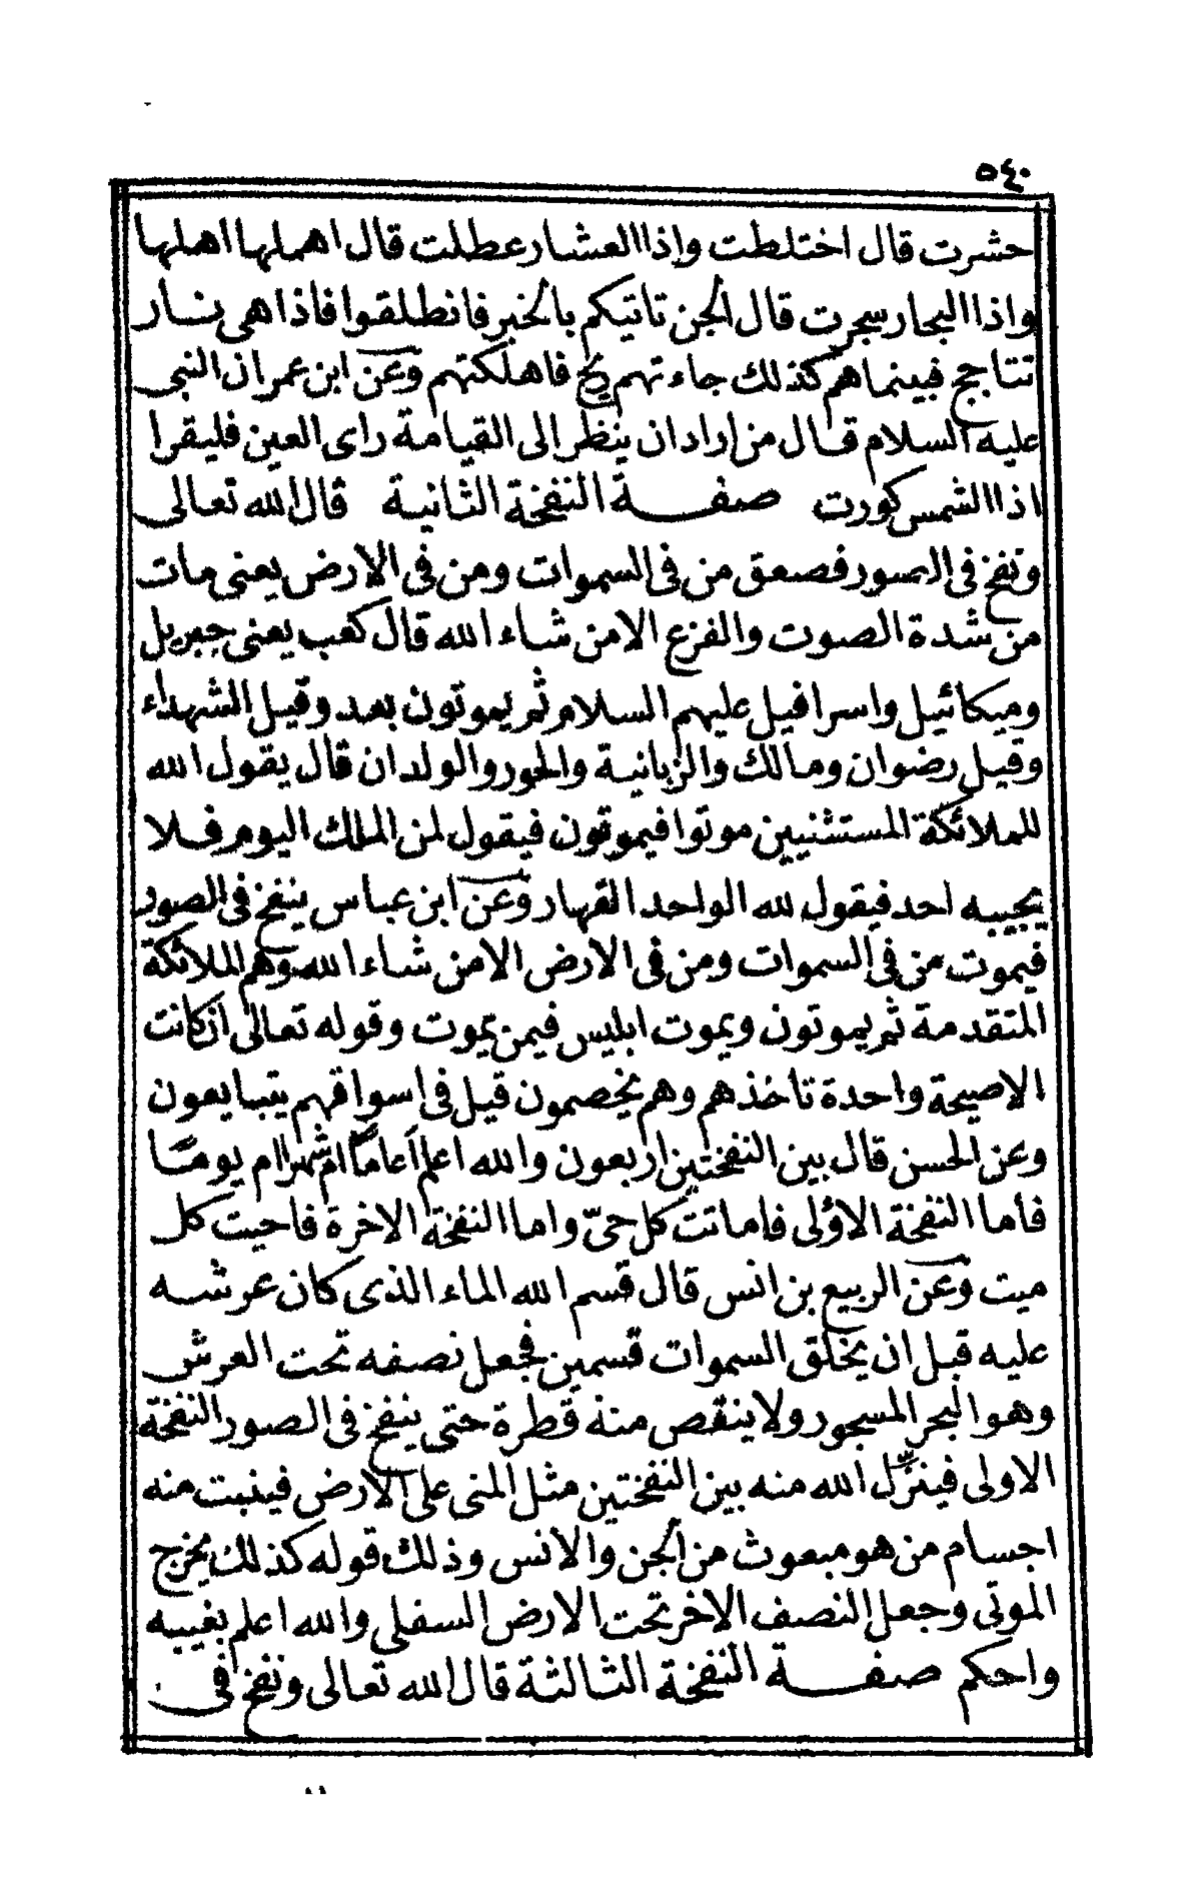 ٥٤٠
حشرت قال اختلطت واذا العشار عطلت قال اهملها اهلها
واذا البحار سجرت قال الجن ناتيكم بالخبر فانطلقوا فاذا هى نار
تتاجج فبينما هم كذلك جاءتهم ريح فاهلكتهم وعن ابن عمر ان النبى
عليه السلام قال من اراد ان ينظر الى القيامة راى العين فليقرا
اذا الشمس كورت صفة النفخة الثانية قال الله تعالى
ونفخ فى الصور فصعق من فى السموات ومن فى الارض يعنى مات
من شدة الصوت والفزع الا من شاء الله قال كعب يعنى جبريل
وميكائيل واسرافيل عليهم السلام ثم يموتون بعد وقيل الشهداء
وقيل رضوان ومالك والزبانية والحور والولدان قال يقول الله
للملائكة المستثنيين موتوا فيموتون فيقول لمن الملك اليوم فلا
يجيبه احد فيقول لله الواحد القهار وعن ابن عباس ينفخ فى الصور
فيموت من فى السموات ومن فى الارض الا من شاء الله وهم الملائكة
المتقدمة ثم يموتون ويموت ابليس فيمن يموت وقوله تعالى ان كانت
الا صيحة واحدة تاخذهم وهم يخصمون قيل فى اسواقهم يتبايعون
وعن الحسن قال بين النفختين اربعون والله اعلم اعاما ام شهرا ام يوما
فاما النفخة الاؤلى فاماتت كل حىّ واما النفخة الاخرة فاحيت كل
ميت وعن الربيع بن انس قال قسم الله الماء الذى كان عرشه
عليه قبل ان يخلق السموات قسمين فجعل نصفه تحت العرش
وهو البحر المسجور ولا ينقص منه قطرة حتى ينفخ فى الصور النفخة
الاولى فينزّل الله منه بين النفختين مثل المنى على الارض فينبت منه
اجسام من هو مبعوث من الجن والانس وذلك قوله كذلك يخرج
الموتى وجعل النصف الاخر تحت الارض السفلى والله اعلم بغيبه
واحكم صفة النفخة الثالثة قال الله تعالى ونفخ فى